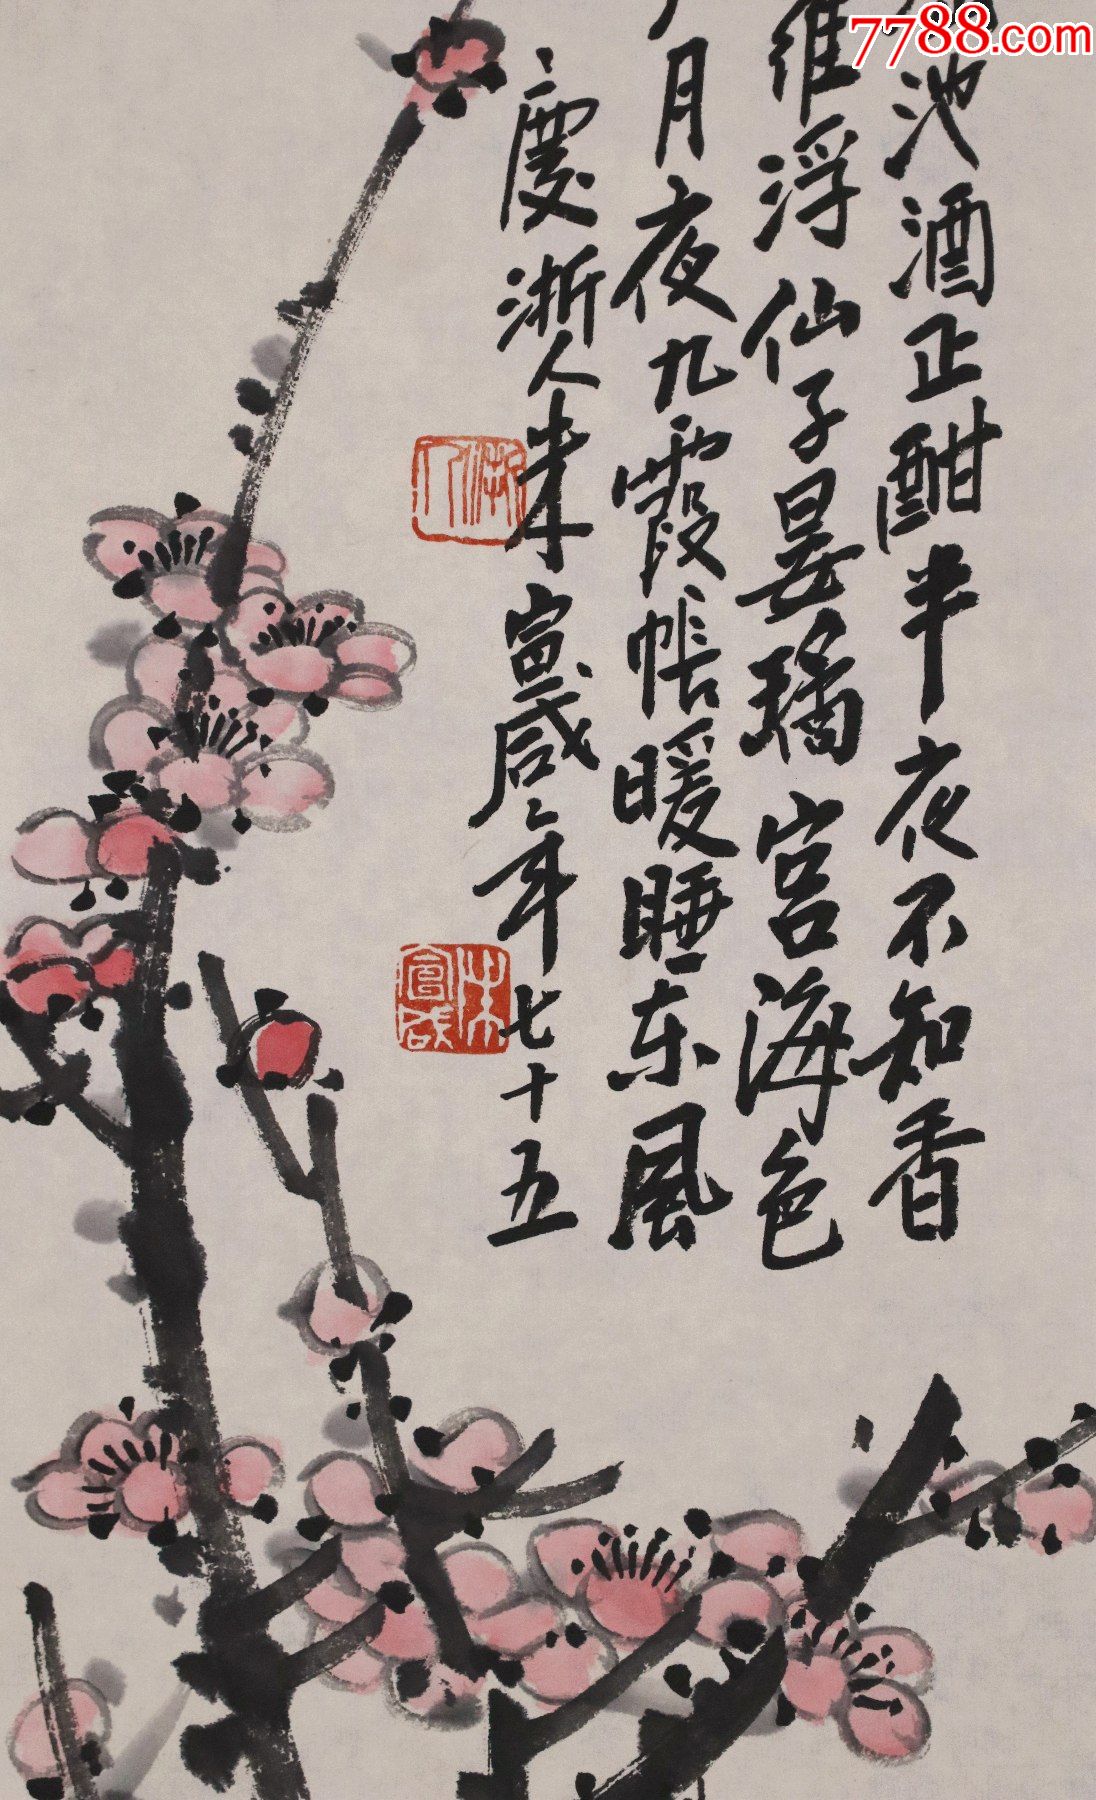 7788.com
池酒正酣半夜不知香
浮仙子晏璚宮海色
月夜九霞帳暖睡东風
慶浙人朱宣咸年七十五
浙人
朱宣咸